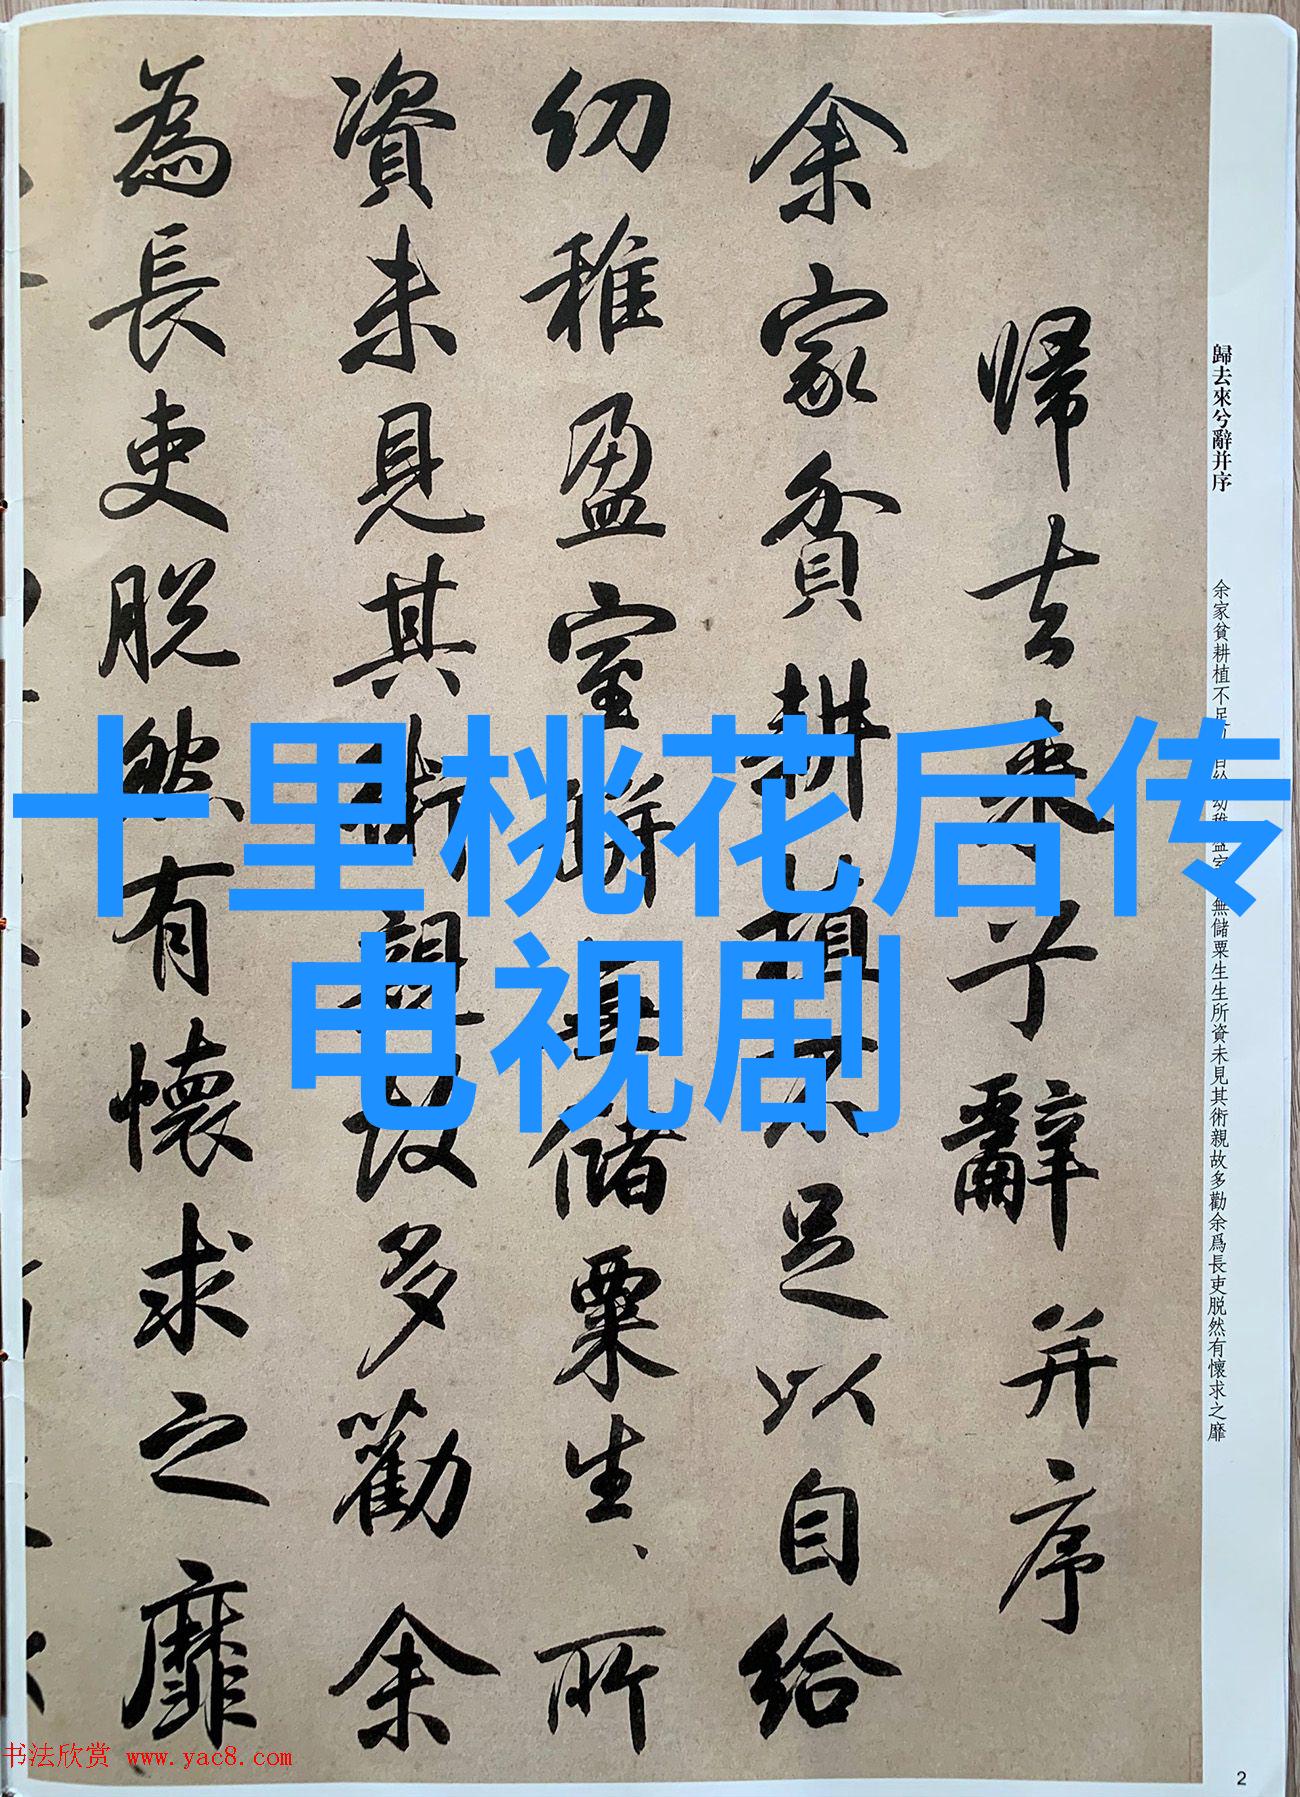 歸去來兮辭并序
余家貧耕植不足
無儲粟生生所資未見其術親故多勸余爲長吏脱然有懷求之靡
歸去来兮辭并序
余家貧耕植不足以自給
幼稚盈室缾無儲粟生、所
資未見其術親故多勸余
為長吏脱然有懷求之靡
十里桃花后传
电视剧
书法欣赏 www.yac8.com
2